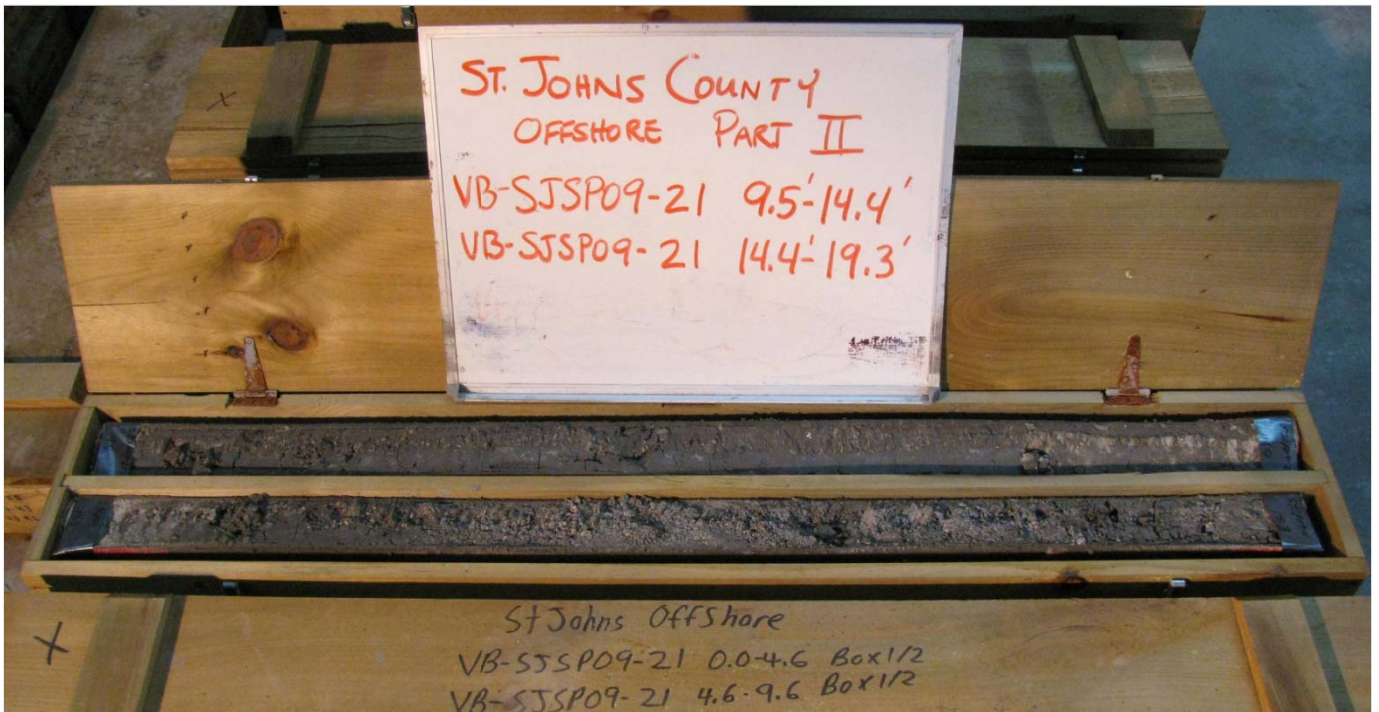 ST. JOHNS COUNTY
OFFSHORE PART II
VB-SJSP09-21 9.5'-14.4'
VB-SJSP09-21 14.4'-19.3'
X
X
St Johns Offshore
VB-SJSP09-21 0.0-4.6 Box 1/2
VB-SJSP09-21 4.6-9.6 Box 1/2